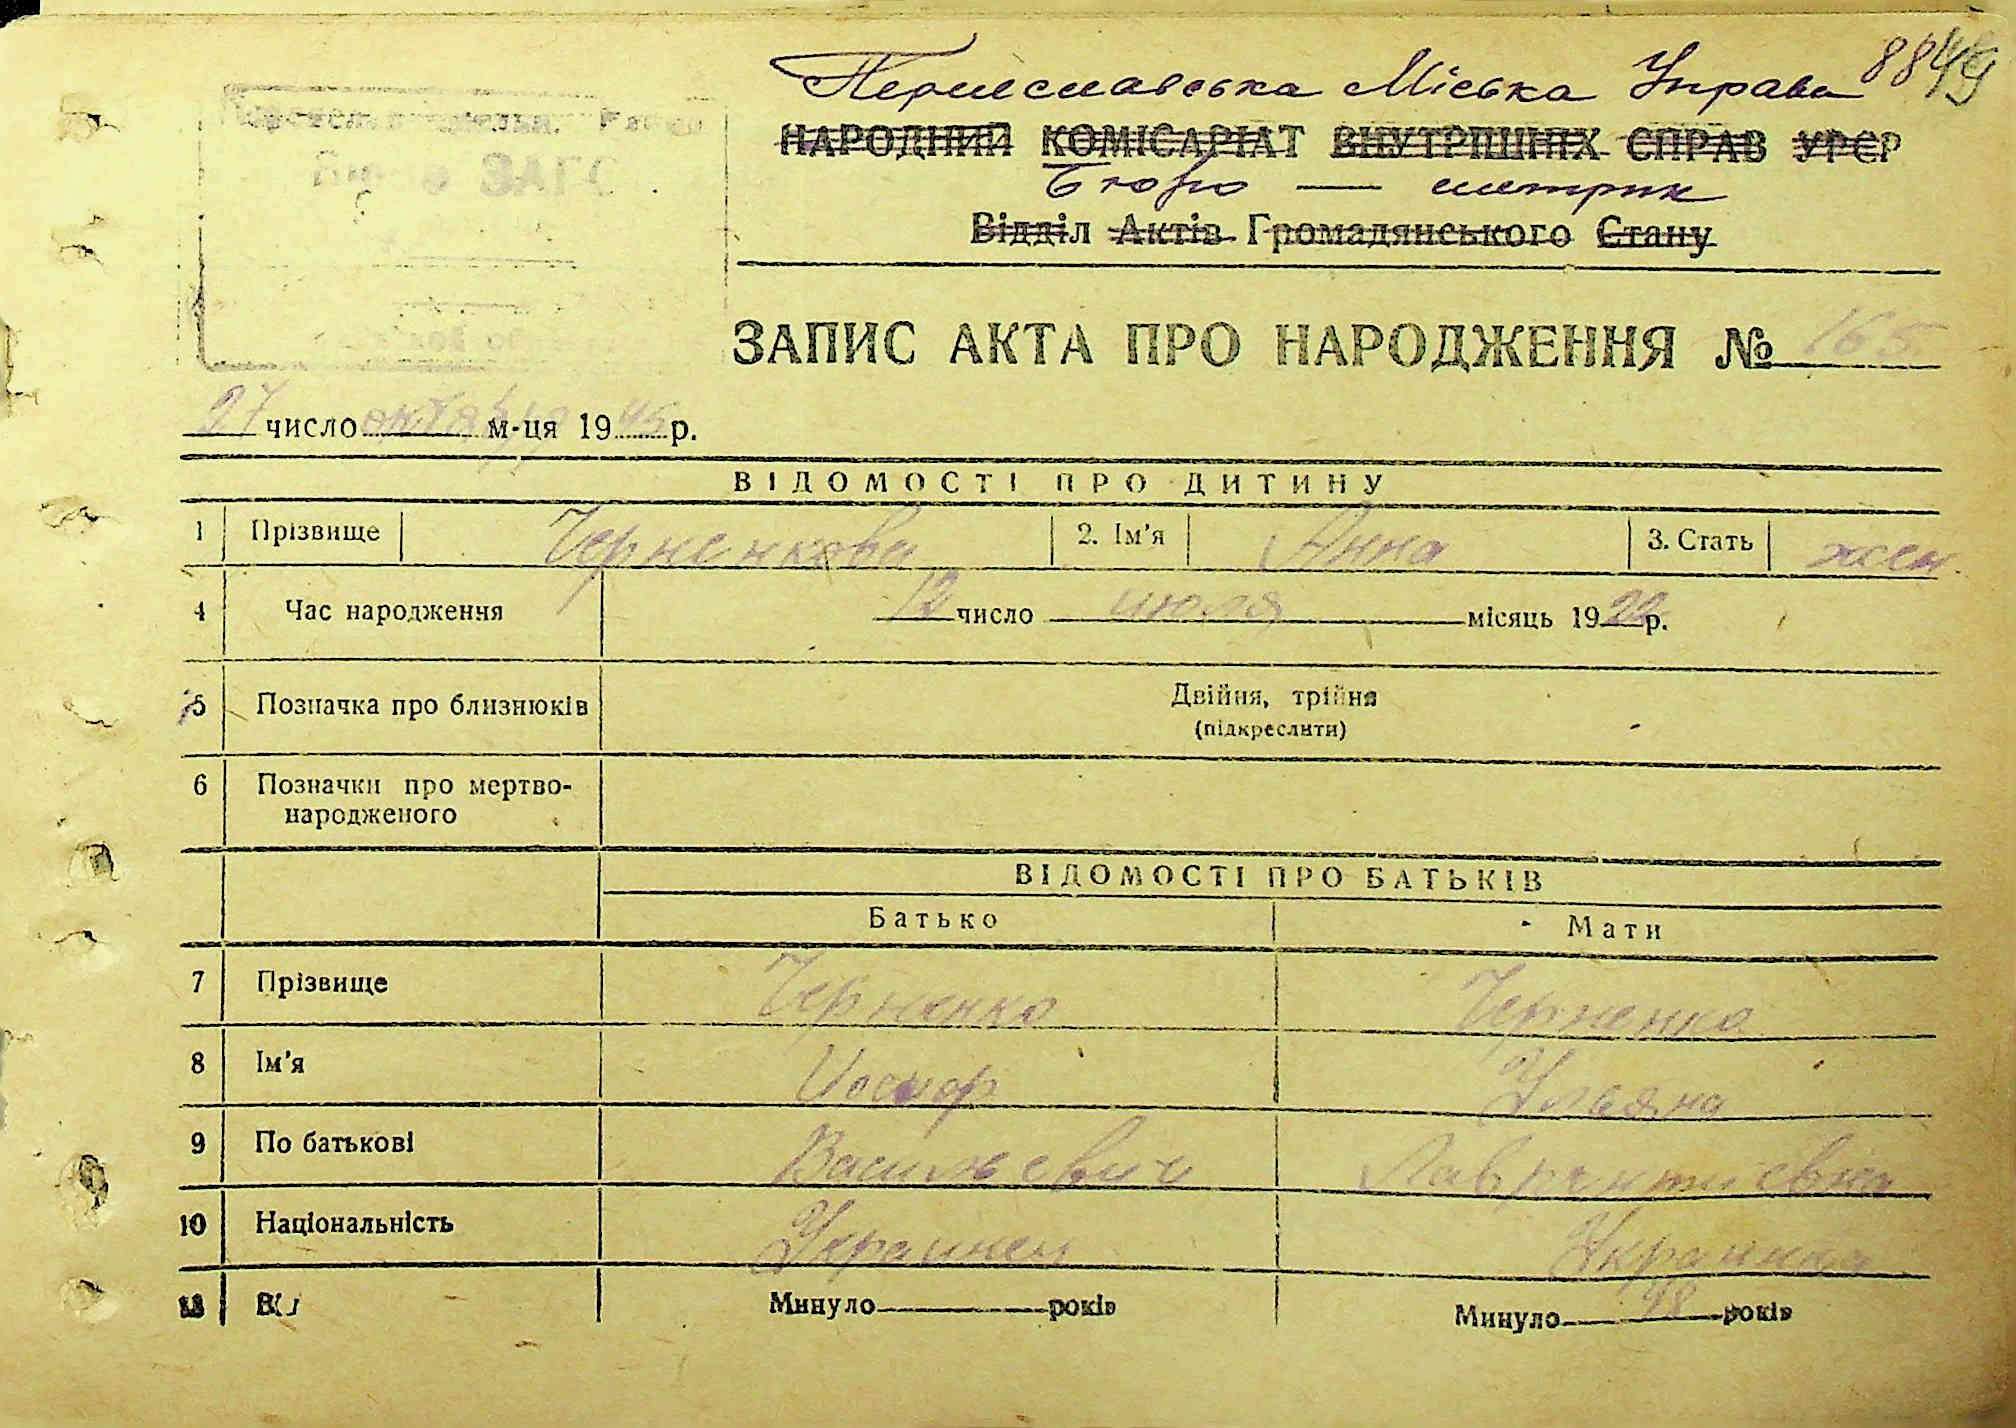 Переяславська Міська Управа 8849
НАРОДНИЙ КОМІСАРІАТ ВНУТРІШНІХ СПРАВ УРСР
Бюро — метрик
Відділ Актів Громадянського Стану
ЗАГС
ЗАПИС АКТА ПРО НАРОДЖЕННЯ № 165
27 число октября м-ця 1945 р.
ВІДОМОСТІ ПРО ДИТИНУ
1 Прізвище Черненкова 2. Ім'я Анна 3. Стать жен.
4 Час народження 12 число июля місяць 1922 р.
5 Позначка про близнюків Двійня, трійня
(підкреслити)
6 Позначки про мертво-
народженого
ВІДОМОСТІ ПРО БАТЬКІВ
Батько Мати
7 Прізвище Черненко Черненко
8 Ім'я Иосиф Ульяна
9 По батькові Васильевич Лаврентиевна
10 Національність Украинец Украинка
Минуло років Минуло 48 років